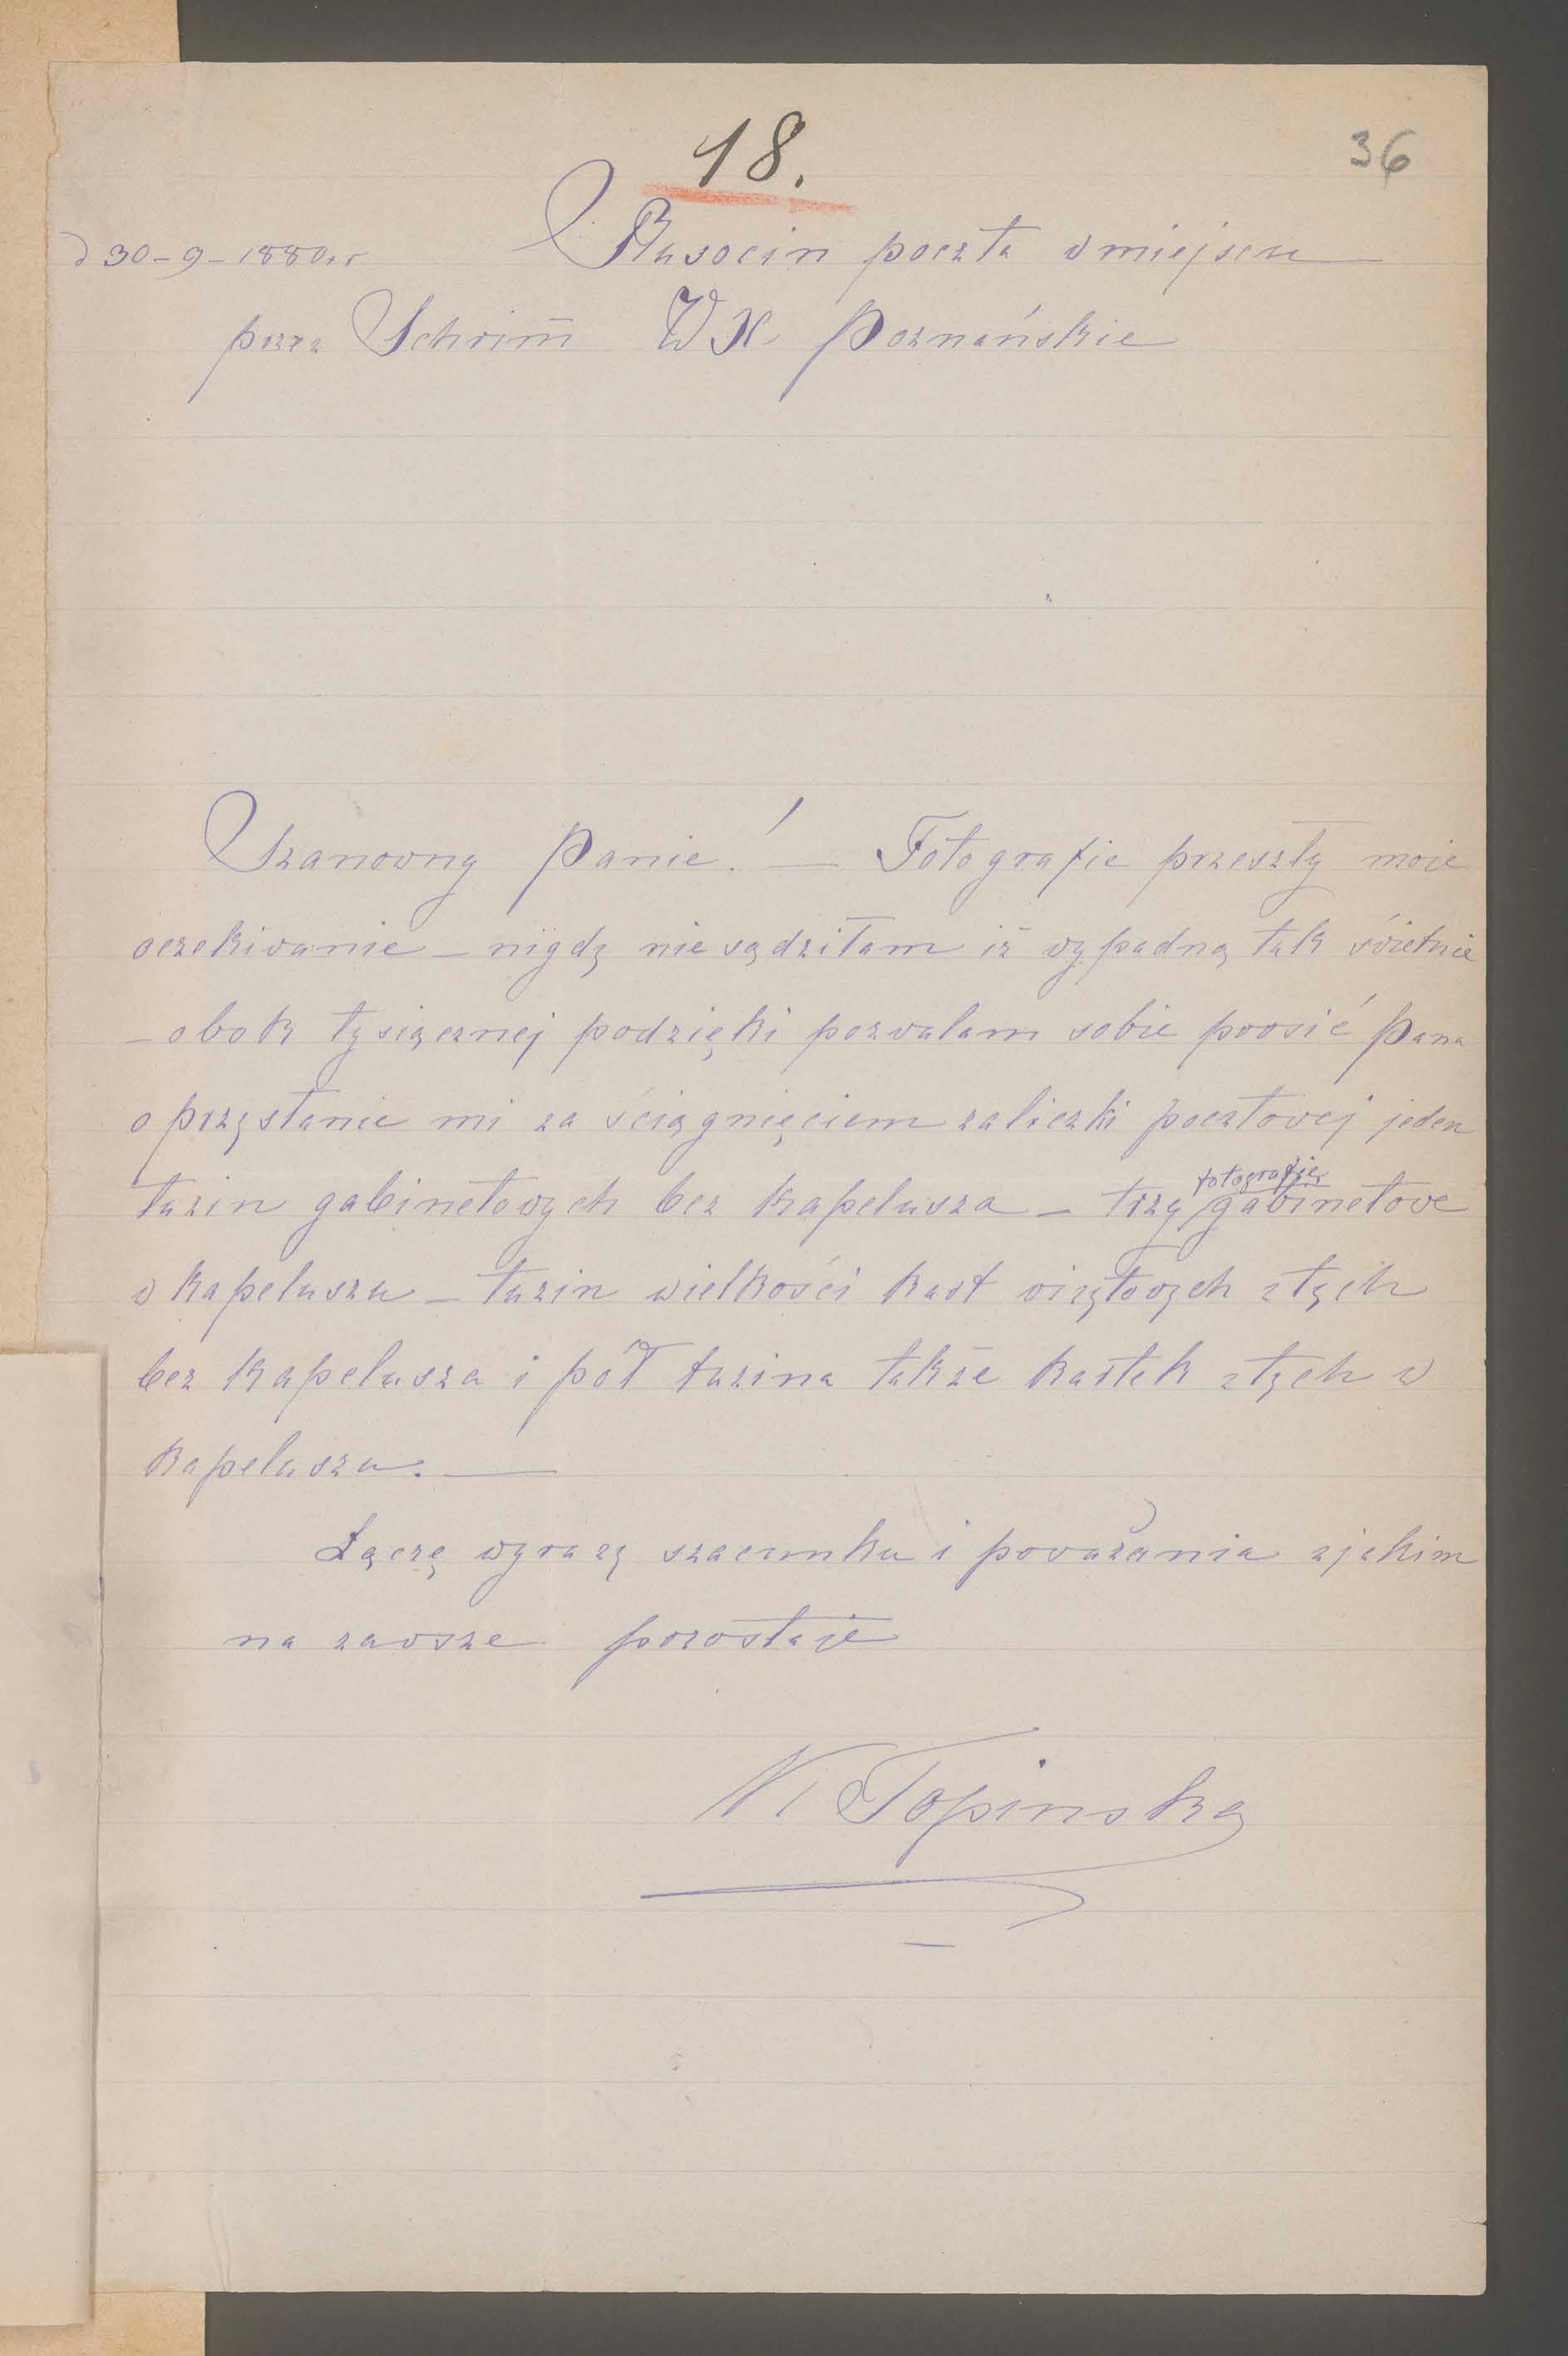 18.
36
d 30-9-1880 r
Rusocin poczta w miejscu
przez Schrim̄ W X Poznańskie
Szanowny Panie! — Fotografie przeszły moie
oczekiwanie – nigdy nie sądziłam iż wypadną tak świetnie
– obok tysiącznej podzięki pozwalam sobie prosić Pana
o przysłanie mi za ściągnięciem zaliczki pocztowej jeden
tuzin gabinetowych bez kapelusza – trzy fotografie gabinetowe
w kapeluszu – tuzin wielkości kart wizytowych z tych
bez kapelusza i pół tuzina także kartek z tych w
kapeluszu. —
Łączę wyrazy szacunku i poważania z jakim
na zawsze pozostaje
N. Topinska